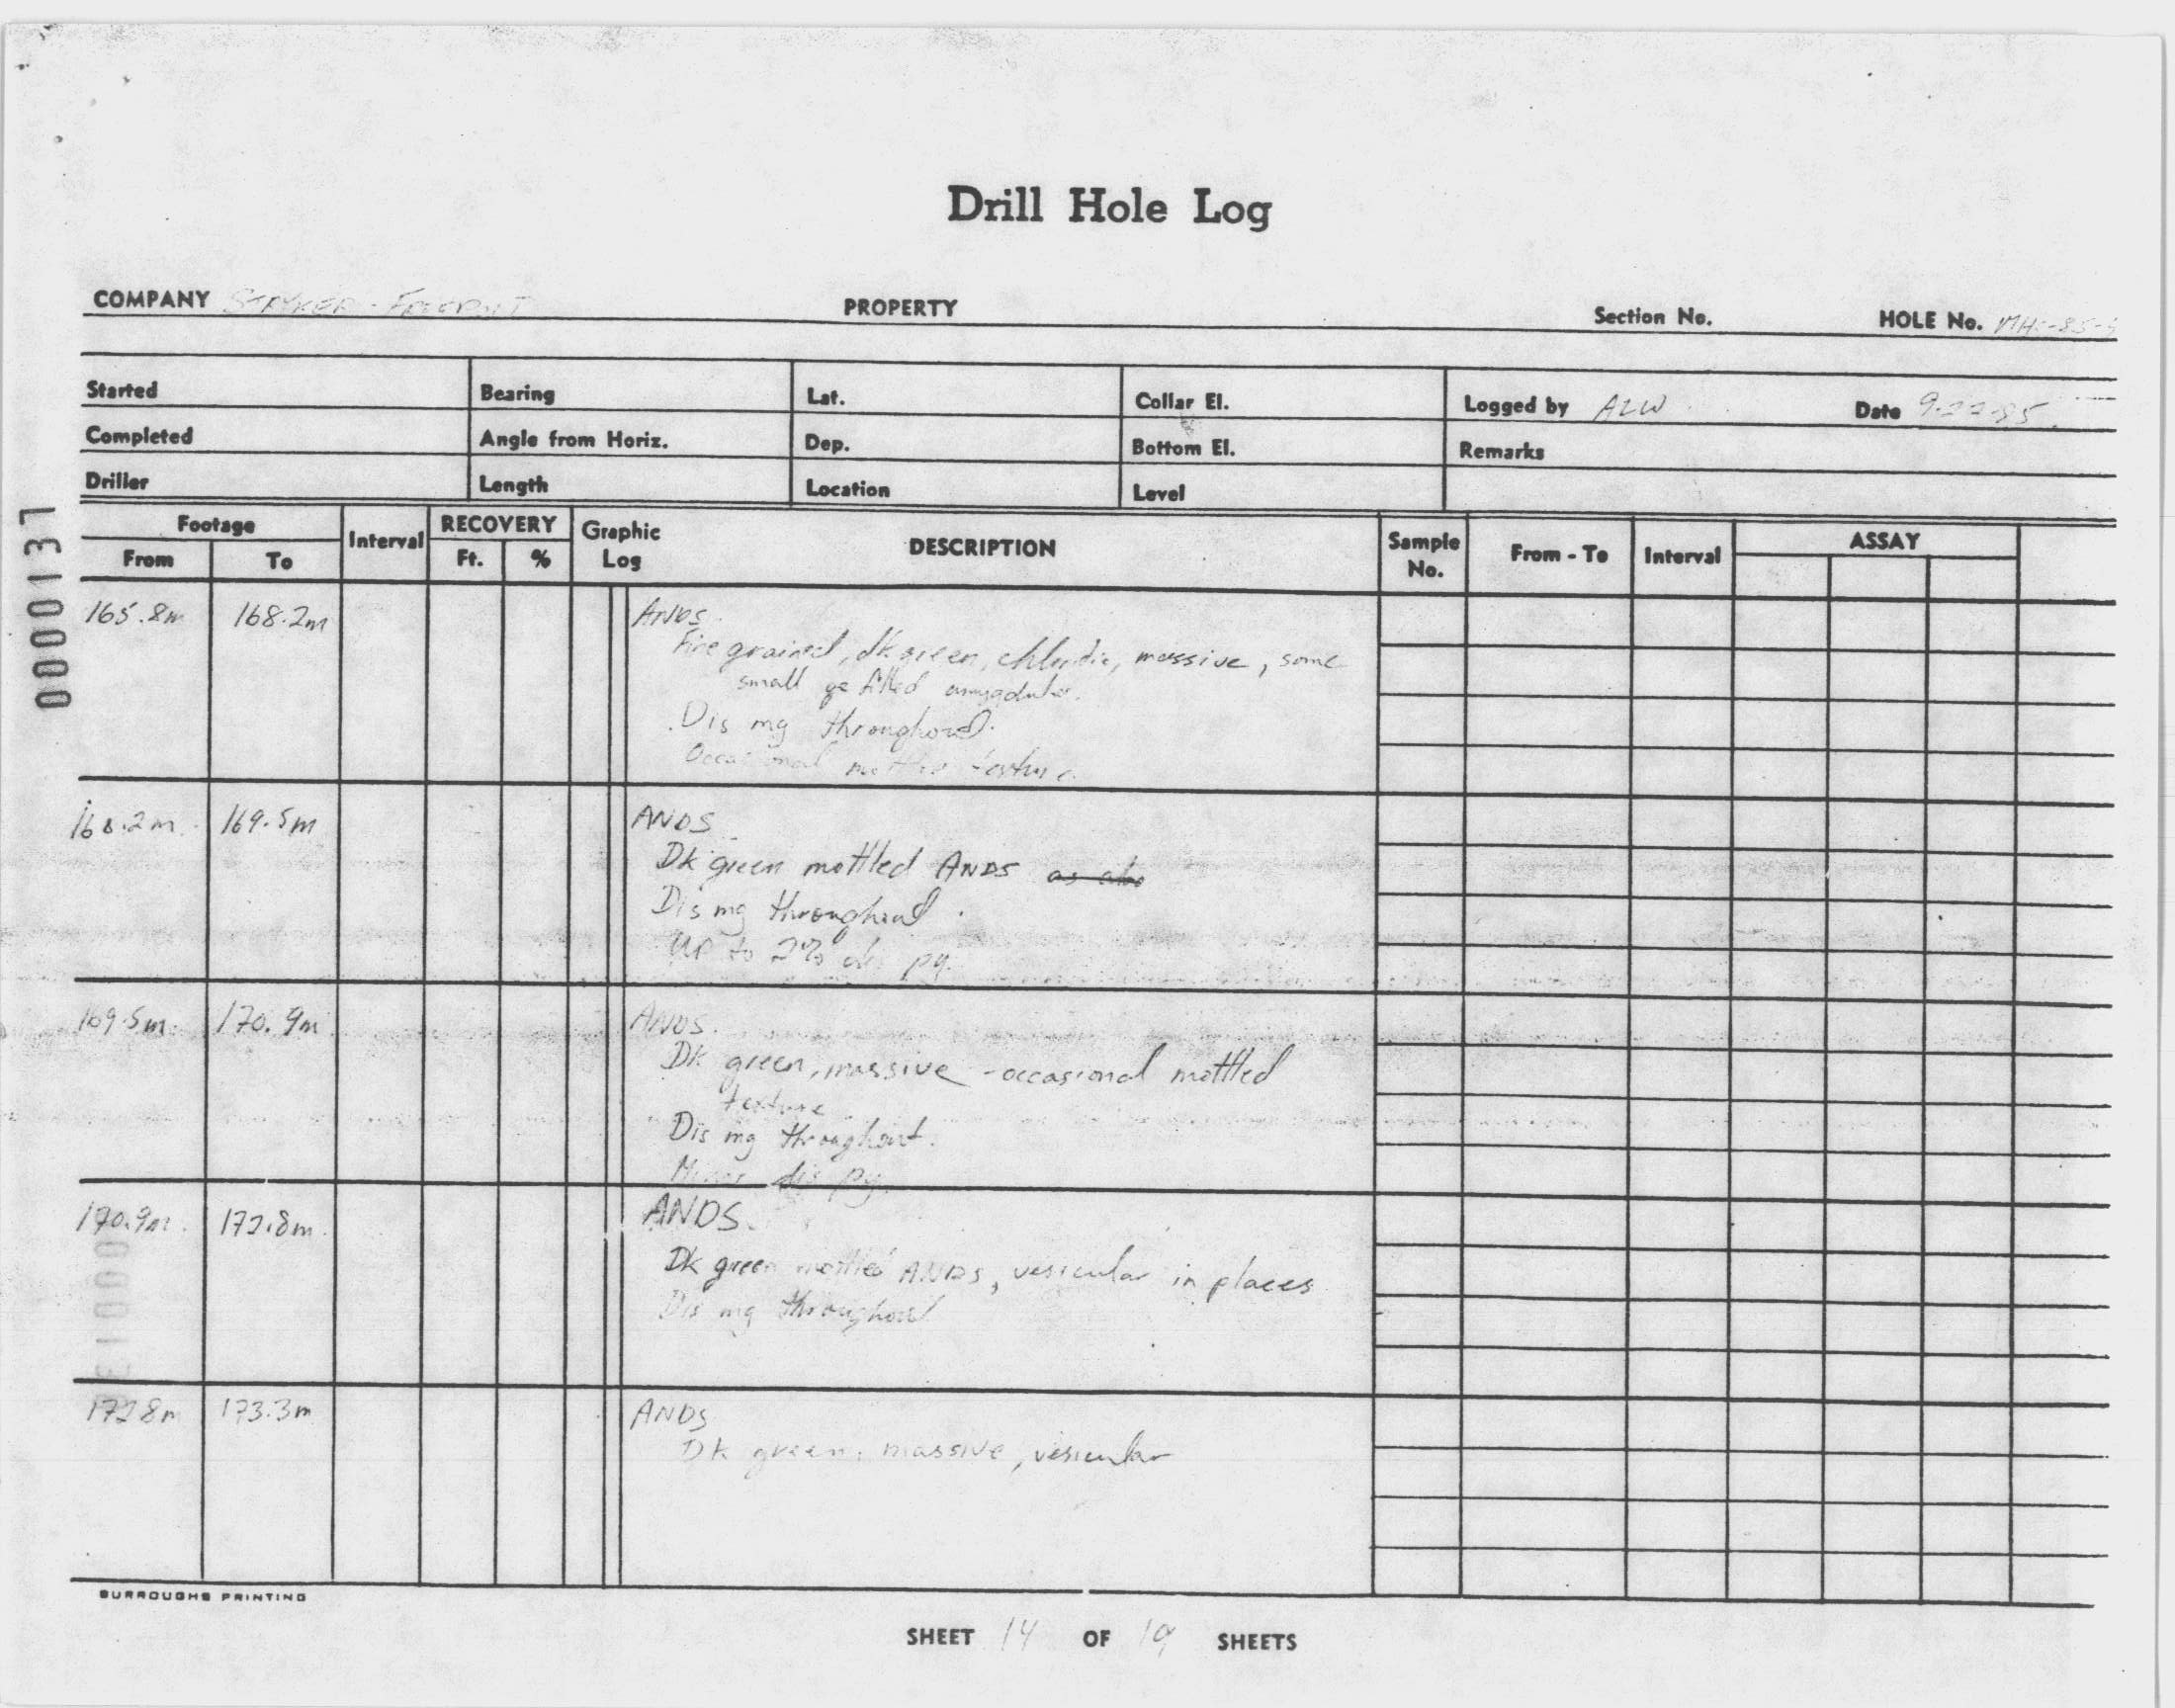 Drill Hole Log
COMPANY STRYKER - FREEPORT PROPERTY Section No. HOLE No.
Started Bearing Lat. Collar El. Logged by ALW Date 9-27-85
Completed Angle from Horiz. Dep. Bottom El. Remarks
Driller Length Location Level
Footage Interval RECOVERY Graphic Log DESCRIPTION Sample No. From - To Interval ASSAY
From To Ft. %
0000137
165.8m 168.2m ANDS.
Fine grained, dk green, chloritic, massive, some
small filled amygdules.
Dis mg throughout.
Occasional mottled texture.
168.2m 169.5m ANDS
Dk green mottled ANDS
Dis mg throughout.
Up to 2% dis py.
169.5m 170.9m ANDS.
Dk green, massive - occasional mottled
texture
Dis mg throughout.
Minor dis py.
170.9m 172.8m ANDS.
Dk green mottled ANDS, vesicular in places
Dis mg throughout
172.8m 173.3m ANDS
Dk green, massive, vesicular
BURROUGHS PRINTING
SHEET 14 OF 19 SHEETS